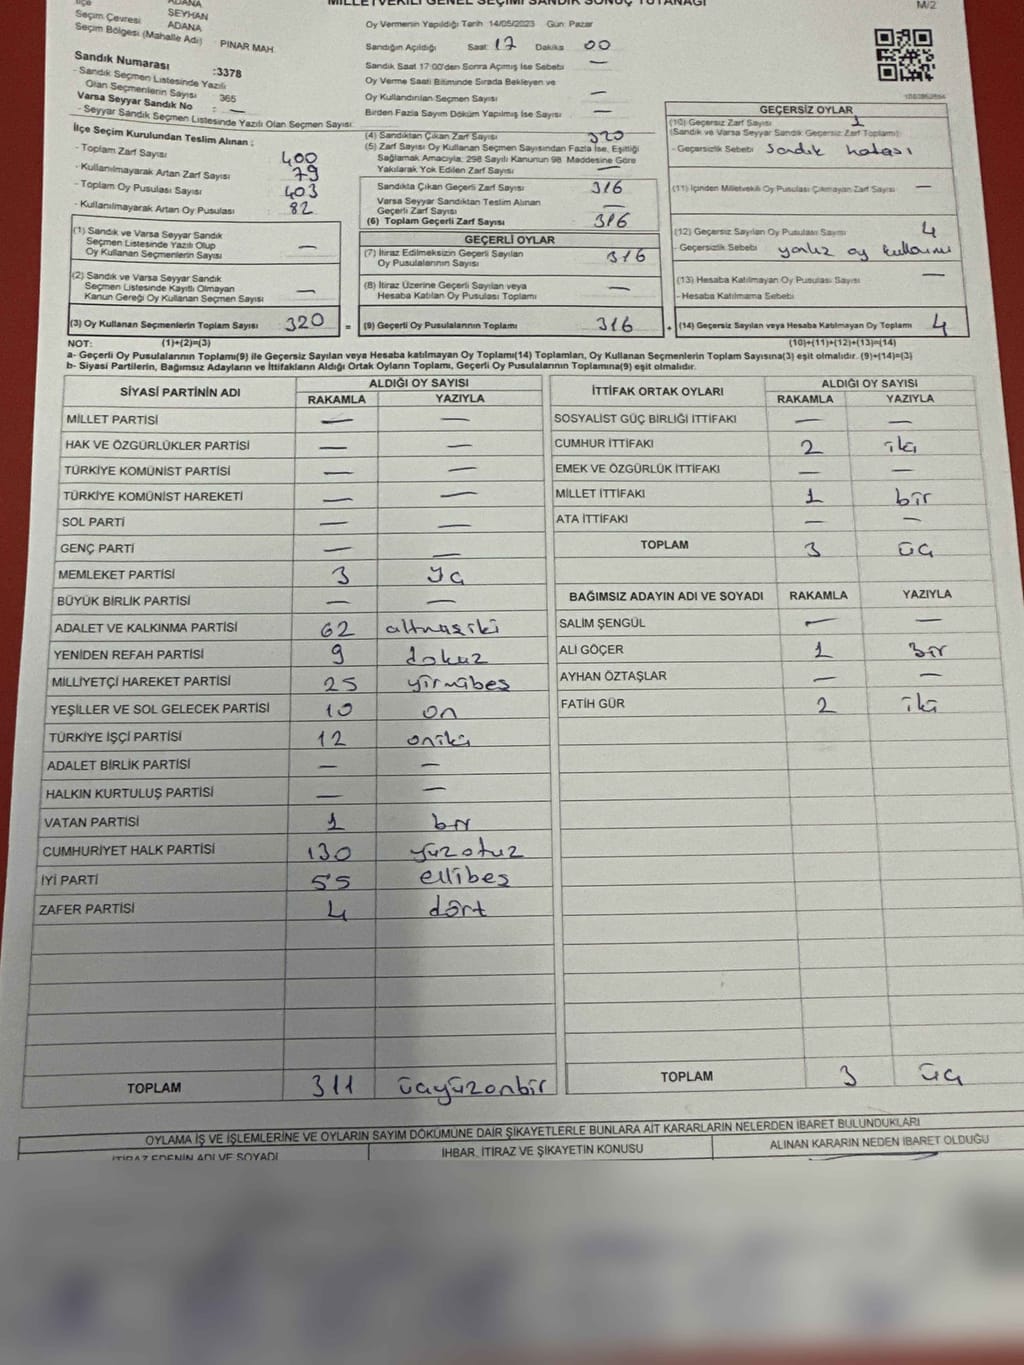 MİLLETVEKİLİ GENEL SEÇİMİ SANDIK SONUÇ TUTANAĞI
M/2
İlçe
ADANA
SEYHAN
Seçim Çevresi ADANA
Seçim Bölgesi (Mahalle Adı) : PINAR MAH.
Sandık Numarası :3378
- Sandık Seçmen Listesinde Yazılı
Olan Seçmenlerin Sayısı : 365
Varsa Seyyar Sandık No : —
- Seyyar Sandık Seçmen Listesinde Yazılı Olan Seçmen Sayısı:
İlçe Seçim Kurulundan Teslim Alınan ;
- Toplam Zarf Sayısı 400
- Kullanılmayarak Artan Zarf Sayısı : 79
- Toplam Oy Pusulası Sayısı : 403
- Kullanılmayarak Artan Oy Pusulası : 82
(1) Sandık ve Varsa Seyyar Sandık
Seçmen Listesinde Yazılı Olup
Oy Kullanan Seçmenlerin Sayısı —
(2) Sandık ve Varsa Seyyar Sandık
Seçmen Listesinde Kayıtlı Olmayan
Kanun Gereği Oy Kullanan Seçmen Sayısı —
(3) Oy Kullanan Seçmenlerin Toplam Sayısı 320 =
Oy Vermenin Yapıldığı Tarih 14/05/2023 Gün: Pazar
Sandığın Açıldığı Saat: 17 Dakika 00
Sandık Saat 17:00'den Sonra Açılmış İse Sebebi —
Oy Verme Saati Bitiminde Sırada Bekleyen ve
Oy Kullandırılan Seçmen Sayısı —
Birden Fazla Sayım Döküm Yapılmış İse Sayısı —
(4) Sandıktan Çıkan Zarf Sayısı 320
(5) Zarf Sayısı Oy Kullanan Seçmen Sayısından Fazla İse, Eşitliği
Sağlamak Amacıyla; 298 Sayılı Kanunun 98 Maddesine Göre
Yakılarak Yok Edilen Zarf Sayısı —
Sandıkta Çıkan Geçerli Zarf Sayısı 316
Varsa Seyyar Sandıktan Teslim Alınan
Geçerli Zarf Sayısı —
(6) Toplam Geçerli Zarf Sayısı 316
GEÇERLİ OYLAR
(7) İtiraz Edilmeksizin Geçerli Sayılan
Oy Pusulalarının Sayısı 316
(8) İtiraz Üzerine Geçerli Sayılan veya
Hesaba Katılan Oy Pusulası Toplamı —
(9) Geçerli Oy Pusulalarının Toplamı 316 +
GEÇERSİZ OYLAR
(10) Geçersiz Zarf Sayısı 1
(Sandık ve Varsa Seyyar Sandık Geçersiz Zarf Toplamı)
- Geçersizlik Sebebi Sandık hatası
(11) İçinden Milletvekili Oy Pusulası Çıkmayan Zarf Sayısı —
(12) Geçersiz Sayılan Oy Pusulası Sayısı 4
- Geçersizlik Sebebi
(13) Hesaba Katılmayan Oy Pusulası Sayısı —
- Hesaba Katılmama Sebebi
(14) Geçersiz Sayılan veya Hesaba Katılmayan Oy Toplamı 4
NOT: (1)+(2)=(3) (10)+(11)+(12)+(13)=(14)
a- Geçerli Oy Pusulalarının Toplamı(9) ile Geçersiz Sayılan veya Hesaba katılmayan Oy Toplamı(14) Toplamları, Oy Kullanan Seçmenlerin Toplam Sayısına(3) eşit olmalıdır. (9)+(14)=(3)
b- Siyasi Partilerin, Bağımsız Adayların ve İttifakların Aldığı Ortak Oyların Toplamı, Geçerli Oy Pusulalarının Toplamına(9) eşit olmalıdır.
SİYASİ PARTİNİN ADI ALDIĞI OY SAYISI
RAKAMLA YAZIYLA
MİLLET PARTİSİ — —
HAK VE ÖZGÜRLÜKLER PARTİSİ — —
TÜRKİYE KOMÜNİST PARTİSİ — —
TÜRKİYE KOMÜNİST HAREKETİ — —
SOL PARTİ — —
GENÇ PARTİ — —
MEMLEKET PARTİSİ 3 üç
BÜYÜK BİRLİK PARTİSİ — —
ADALET VE KALKINMA PARTİSİ 62 altmışiki
YENİDEN REFAH PARTİSİ 9 dokuz
MİLLİYETÇİ HAREKET PARTİSİ 25 yirmibeş
YEŞİLLER VE SOL GELECEK PARTİSİ 10 on
TÜRKİYE İŞÇİ PARTİSİ 12 oniki
ADALET BİRLİK PARTİSİ — —
HALKIN KURTULUŞ PARTİSİ — —
VATAN PARTİSİ 1 bir
CUMHURİYET HALK PARTİSİ 130 yüzotuz
İYİ PARTİ 55 ellibeş
ZAFER PARTİSİ 4 dört
TOPLAM 311 üçyüzonbir
İTTİFAK ORTAK OYLARI ALDIĞI OY SAYISI
RAKAMLA YAZIYLA
SOSYALİST GÜÇ BİRLİĞİ İTTİFAKI — —
CUMHUR İTTİFAKI 2 iki
EMEK VE ÖZGÜRLÜK İTTİFAKI — —
MİLLET İTTİFAKI 1 bir
ATA İTTİFAKI — —
TOPLAM 3 üç
BAĞIMSIZ ADAYIN ADI VE SOYADI RAKAMLA YAZIYLA
SALİM ŞENGÜL — —
ALİ GÖÇER 1 Bir
AYHAN ÖZTAŞLAR — —
FATİH GÜR 2 iki
TOPLAM 3 üç
OYLAMA İŞ VE İŞLEMLERİNE VE OYLARIN SAYIM DÖKÜMÜNE DAİR ŞİKAYETLERLE BUNLARA AİT KARARLARIN NELERDEN İBARET BULUNDUKLARI
İTİRAZ EDENİN ADI VE SOYADI İHBAR, İTİRAZ VE ŞİKAYETİN KONUSU ALINAN KARARIN NEDEN İBARET OLDUĞU